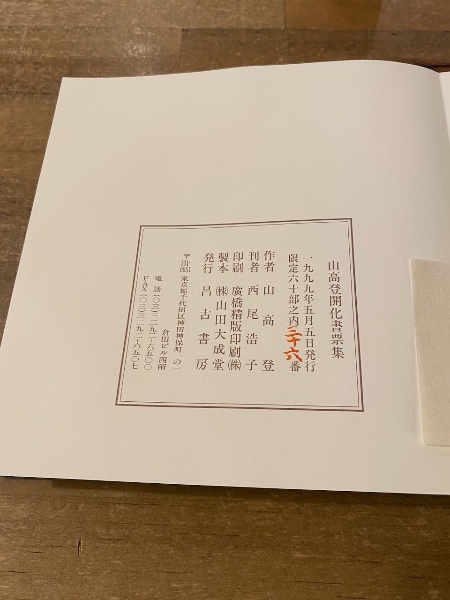 山高登開化書票集
一九九九年五月五日発行
限定六十部之内三十六番
作者 山高登
刊者 西尾浩子
印刷 廣橋精版印刷㈱
製本 ㈱山田大成堂
発行 呂古書房
〒101-0051 東京都千代田区神田神保町一の一
倉田ビル四階
電話 〇三-三二九二-六五〇〇
FAX 〇三-三二九二-六五〇七